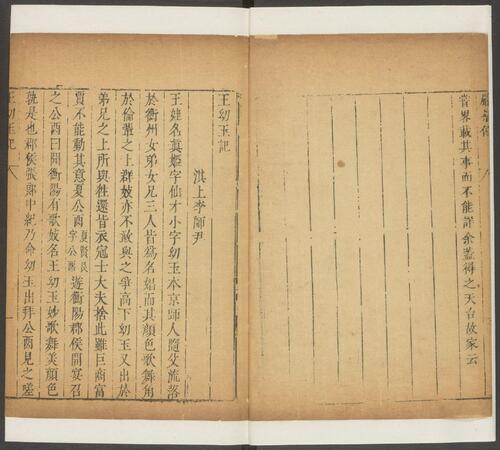 嘗畧載其事而不能詳余蓋得之天台故家云
王幼玉記
淇上李師尹
王姓名眞姬字仙才小字幼玉本京師人隨父流落
於衡州女弟女兄三人皆爲名娼而其顔色歌舞角
於倫輩之上群妓亦不敢與之爭高下幼玉又出於
弟兄之上所與往還皆衣冠士大夫捨此雖巨商富
賈不能動其意夏公酉夏賢良字公酉遊衡陽郡侯開宴召
之公酉曰聞衡陽有歌妓名王幼玉妙歌舞美顔色
孰是也郡侯張郎中紀乃命幼玉出拜公酉見之嗟
王幼玉記